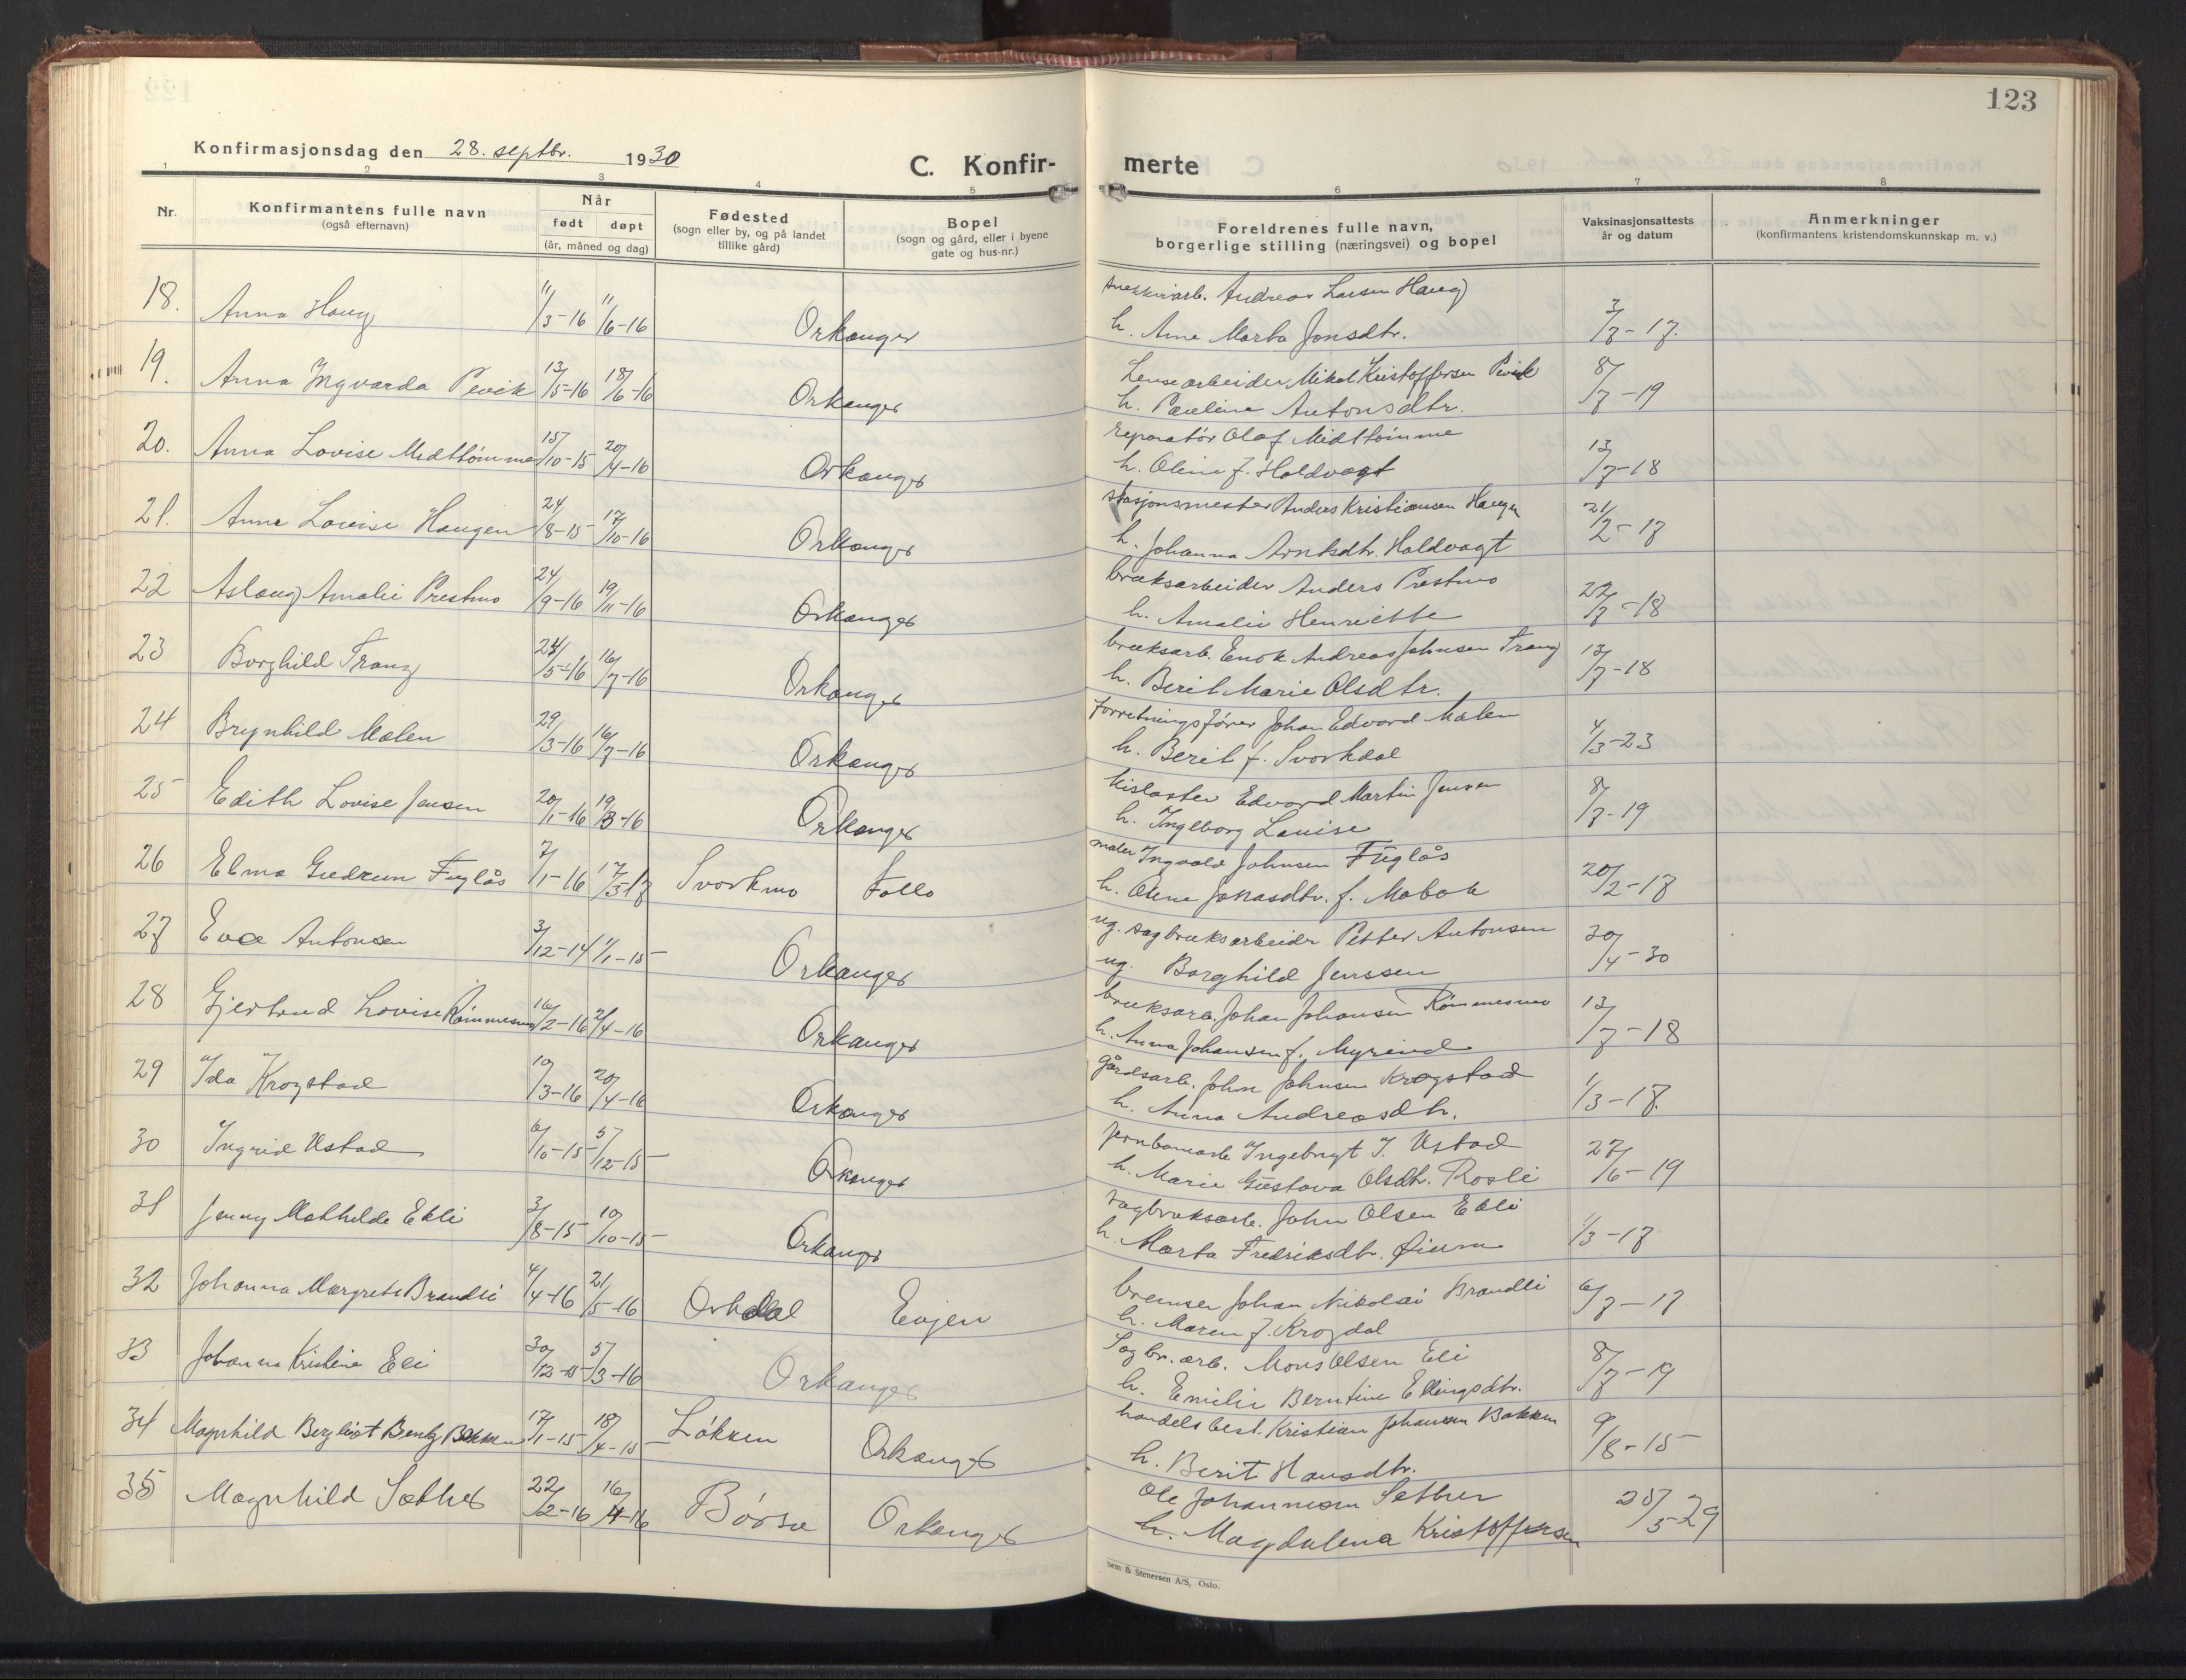 123
Konfirmasjonsdag den 28. septbr. 1930
C. Konfir-
merte
1 2 3 4 5 6 7 8
Nr.
Konfirmantens fulle navn
(også efternavn)
Når
født døpt
(år, måned og dag)
Fødested
(sogn eller by, og på landet
tillike gård)
Bopel
(sogn og gård, eller i byene
gate og hus-nr.)
Foreldrenes fulle navn,
borgerlige stilling (næringsvei) og bopel
Vaksinasjonsattests
år og datum
Anmerkninger
(konfirmantens kristendomskunnskap m. v.)
18. Anna Haug 11/3-16 11/6-16 Orkanger
Andreas Larsen Haug
h. Ane Marta Jonsdtr. 3/7-17.
19. Anna Ingvarda Pevik 13/5-16 18/6-16 Orkanger
Lensearbeider Mikal Kristoffersen Pevik
h. Pauline Antonsdtr. 8/7-19
20. Anna Lovise Midttömme 15/10-15 20/4-16 Orkanger
reparatör Olaf Midttömme
h. Oline f. Holdvogt 13/7-18
21. Anna Lovise Haugen 24/8-15 17/10-16 Orkanger
stasjonsmester Anders Kristiansen Haugen
h. Johanna Arntsdtr. Holdvogt 21/2-17
22 Aslaug Amalie Prestmo 24/9-16 19/11-16 Orkanger
bruksarbeider Anders Prestmo
h. Amalie Henriette 22/7-18
23 Borghild Trang 24/5-16 16/7-16 Orkanger
bruksarb. Enok Andreas Johnsen Trang
h. Berit Marie Olsdtr. 13/7-18
24 Brynhild Malen 29/3-16 16/7-16 Orkanger
forretningsfører Johan Edvard Malen
h. Berit f. Svorkdal 4/3-23
25 Edith Lovise Jensen 20/1-16 19/3-16 Orkanger
kislaster Edvard Martin Jensen
h. Ingeborg Louise 8/7-19
26 Elma Gudrun Fuglås 7/1-16 17/3-17 Svorkmo Follo
maler Ingvald Johnsen Fuglås
h. Oline Jonasdtr. f. Mobak 20/2-17
27 Eva Antonsen 3/12-14 1/1-15 Orkanger
ug. sagbruksarbeider Petter Antonsen
ug. Borghild Jenssen 30/4-30
28 Gjertrud Lovise Römmesmo 16/2-16 2/4-16 Orkanger
bruksarb. Johan Johansen Römmesmo
h. Anna Johansen f. Myrind 13/7-18
29 Ida Krogstad 10/3-16 20/4-16 Orkanger
gårdsarb. John Johnsen Krogstad
h. Anna Andreasdtr. 1/3-17.
30 Ingrid Ustad 6/10-15 5/12-15 Orkanger
jernbanearb Ingebrigt J. Ustad
h. Marie Gustava Olsdtr. Rosli 27/6-19
31 Jenny Mathilde Ekli 3/8-15 10/10-15 Orkanger
sagbruksarb. John Olsen Ekli
h. Marta Fredriksdtr. Øium 1/3-17
32 Johanna Margrete Brandli 4/4-16 21/5-16 Orkdal Evjen
bremser Johan Nikolai Brandli
h. Maren f. Krogdal 6/7-17
33 Johanna Kristine Eli 30/12-15 5/3-16 Orkanger
Sagbr. arb. Mons Olsen Eli
h. Emilie Berntine Ellingsdtr. 8/7-19
34 Magnhild Bergliot Bentz Bakken 17/1-15 18/4-15 Løkken Orkanger
handelsbest. Kristian Johansen Bakken
h. Berit Hansdtr. 9/8-15
35 Magnhild Sæther 22/2-16 16/4-16 Børsa Orkanger
Ole Johannesen Sether
h. Magdalena Kristoffersen 25/5-29
Sem & Stenersen A/S, Oslo.